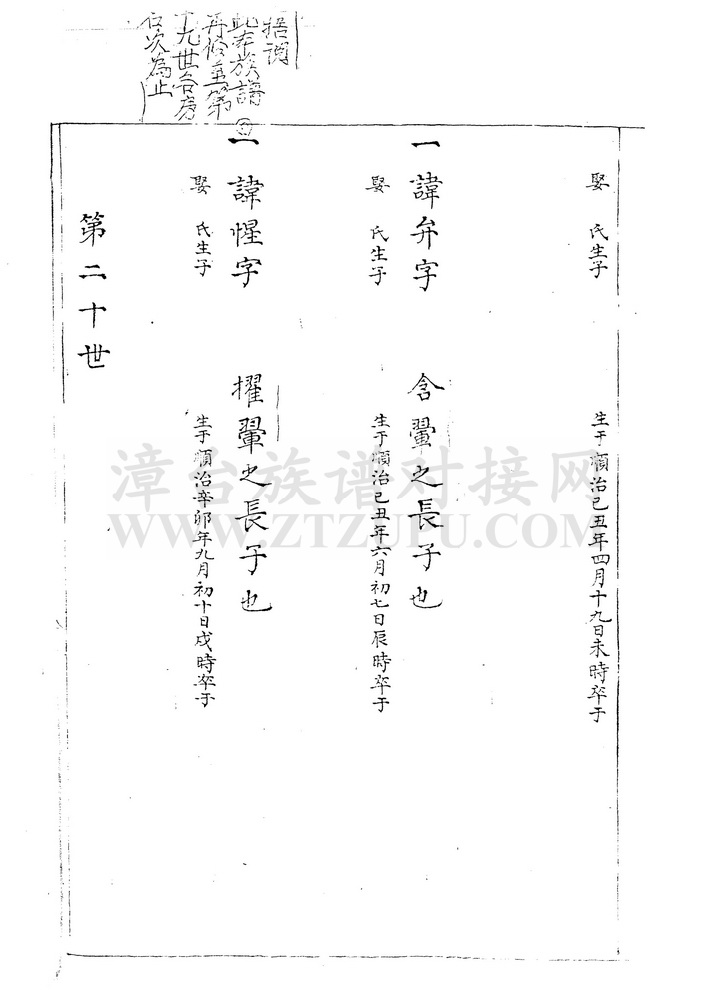 據調
此本族譜
再修至第
十九世各房
名次為止
娶　氏生子　生于順治己丑年四月十九日未時卒于
一諱弁字　含翬之長子也
娶　氏生子　生于順治己丑年六月初七日辰時卒于
一諱惺字　擢翬之長子也
娶　氏生子　生于順治辛卯年九月初十日戌時卒于
第二十世
漳台族谱对接网
WWW.ZTZUPU.COM